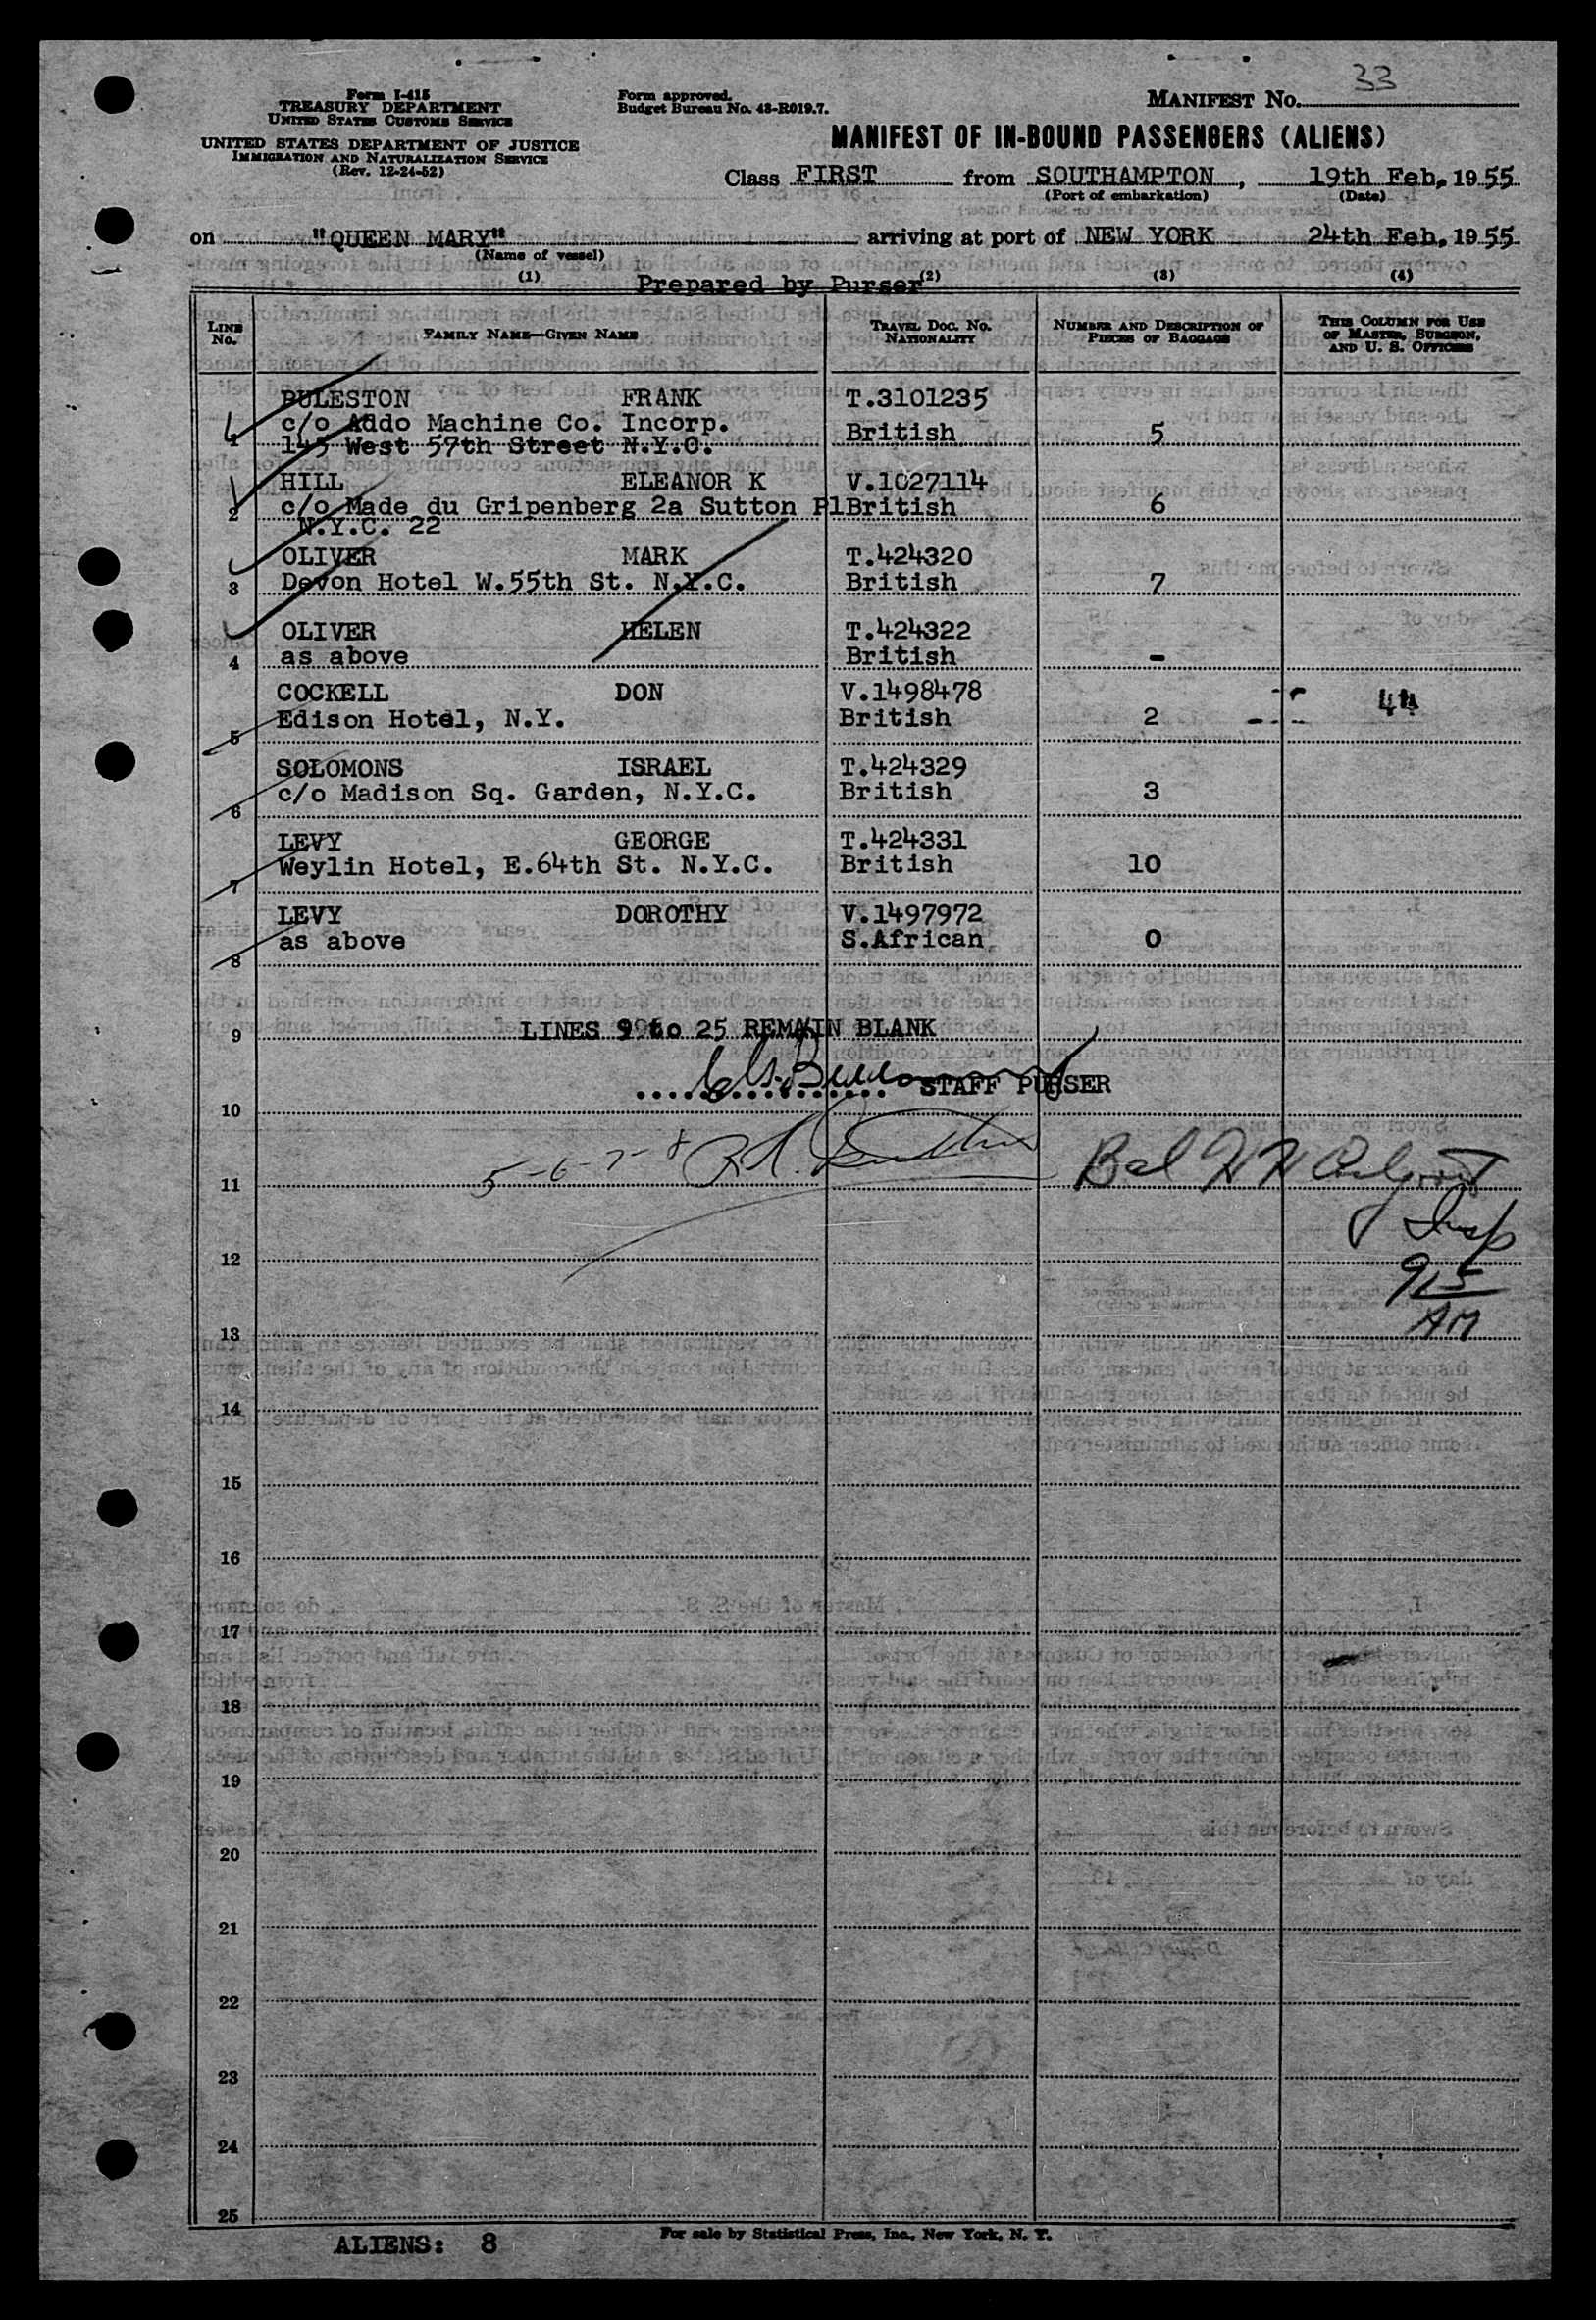 33
Form I-415
TREASURY DEPARTMENT
UNITED STATES CUSTOMS SERVICE
UNITED STATES DEPARTMENT OF JUSTICE
IMMIGRATION AND NATURALIZATION SERVICE
(Rev. 12-24-52)
Form approved.
Budget Bureau No. 43-R019.7.
MANIFEST NO.
MANIFEST OF IN-BOUND PASSENGERS (ALIENS)
Class FIRST from SOUTHAMPTON, 19th Feb, 1955
(Port of embarkation) (Date)
on "QUEEN MARY" arriving at port of NEW YORK 24th Feb, 1955
(Name of vessel)
(1) Prepared by Purser (2) (3) (4)
LINE NO. FAMILY NAME—GIVEN NAME TRAVEL DOC. NO. NATIONALITY NUMBER AND DESCRIPTION OF PIECES OF BAGGAGE THIS COLUMN FOR USE OF MASTER, SURGEON, AND U. S. OFFICERS
PULESTON FRANK T.3101235
c/o Addo Machine Co. Incorp.
1 145 West 57th Street N.Y.C. British 5
HILL ELEANOR K V.1027114
2 c/o Made du Gripenberg 2a Sutton Pl British 6
N.Y.C. 22
OLIVER MARK T.424320
3 Devon Hotel W.55th St. N.Y.C. British 7
OLIVER HELEN T.424322
4 as above British -
COCKELL DON V.1498478
5 Edison Hotel, N.Y. British 2
SOLOMONS ISRAEL T.424329
6 c/o Madison Sq. Garden, N.Y.C. British 3
LEVY GEORGE T.424331
7 Weylin Hotel, E.64th St. N.Y.C. British 10
LEVY DOROTHY V.1497972
8 as above S.African 0
9 LINES 9 to 25 REMAIN BLANK
STAFF PURSER
10
5-6-7-8
11
Insp
12
915
AM
13
14
15
16
17
18
19
20
21
22
23
24
25
ALIENS: 8
For sale by Statistical Press, Inc., New York, N. Y.